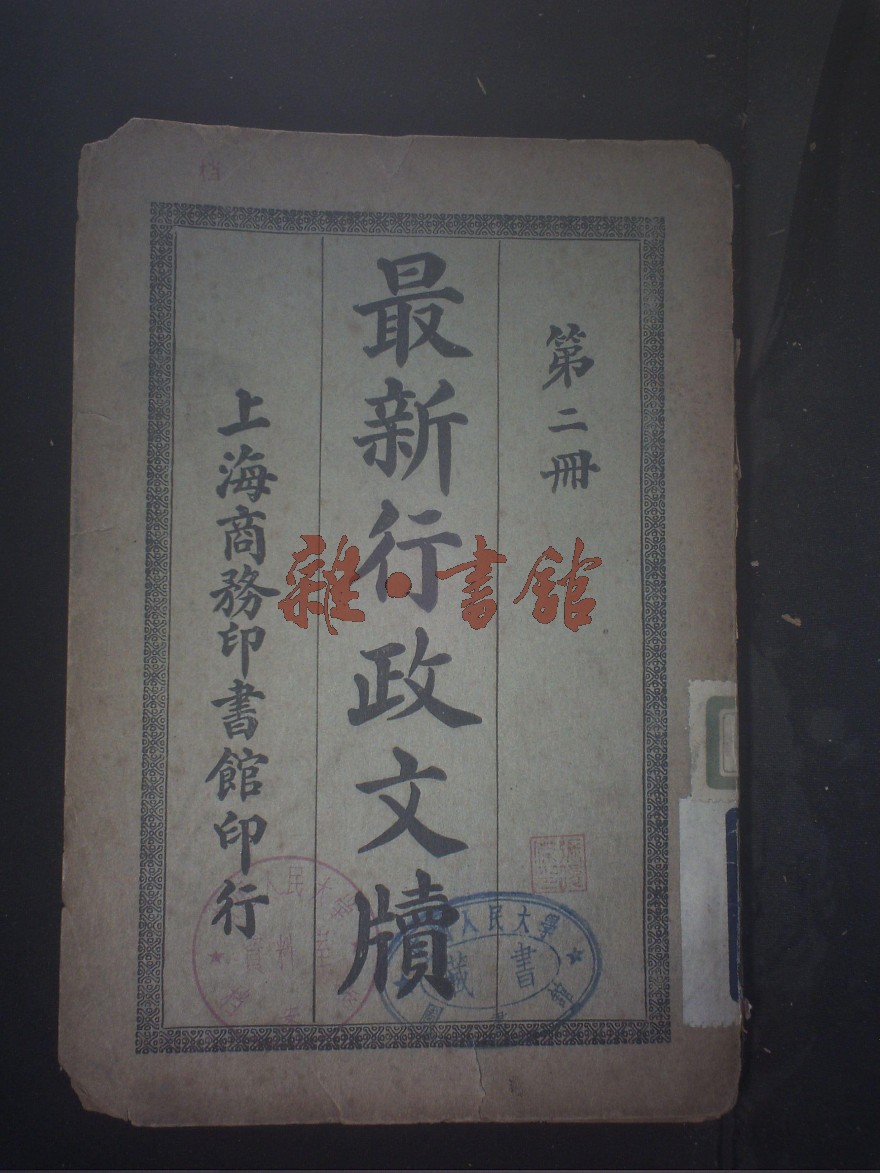 第二冊
最新行政文牘
上海商務印書館印行
雜·書館
人民大學
藏書
人民大
資料